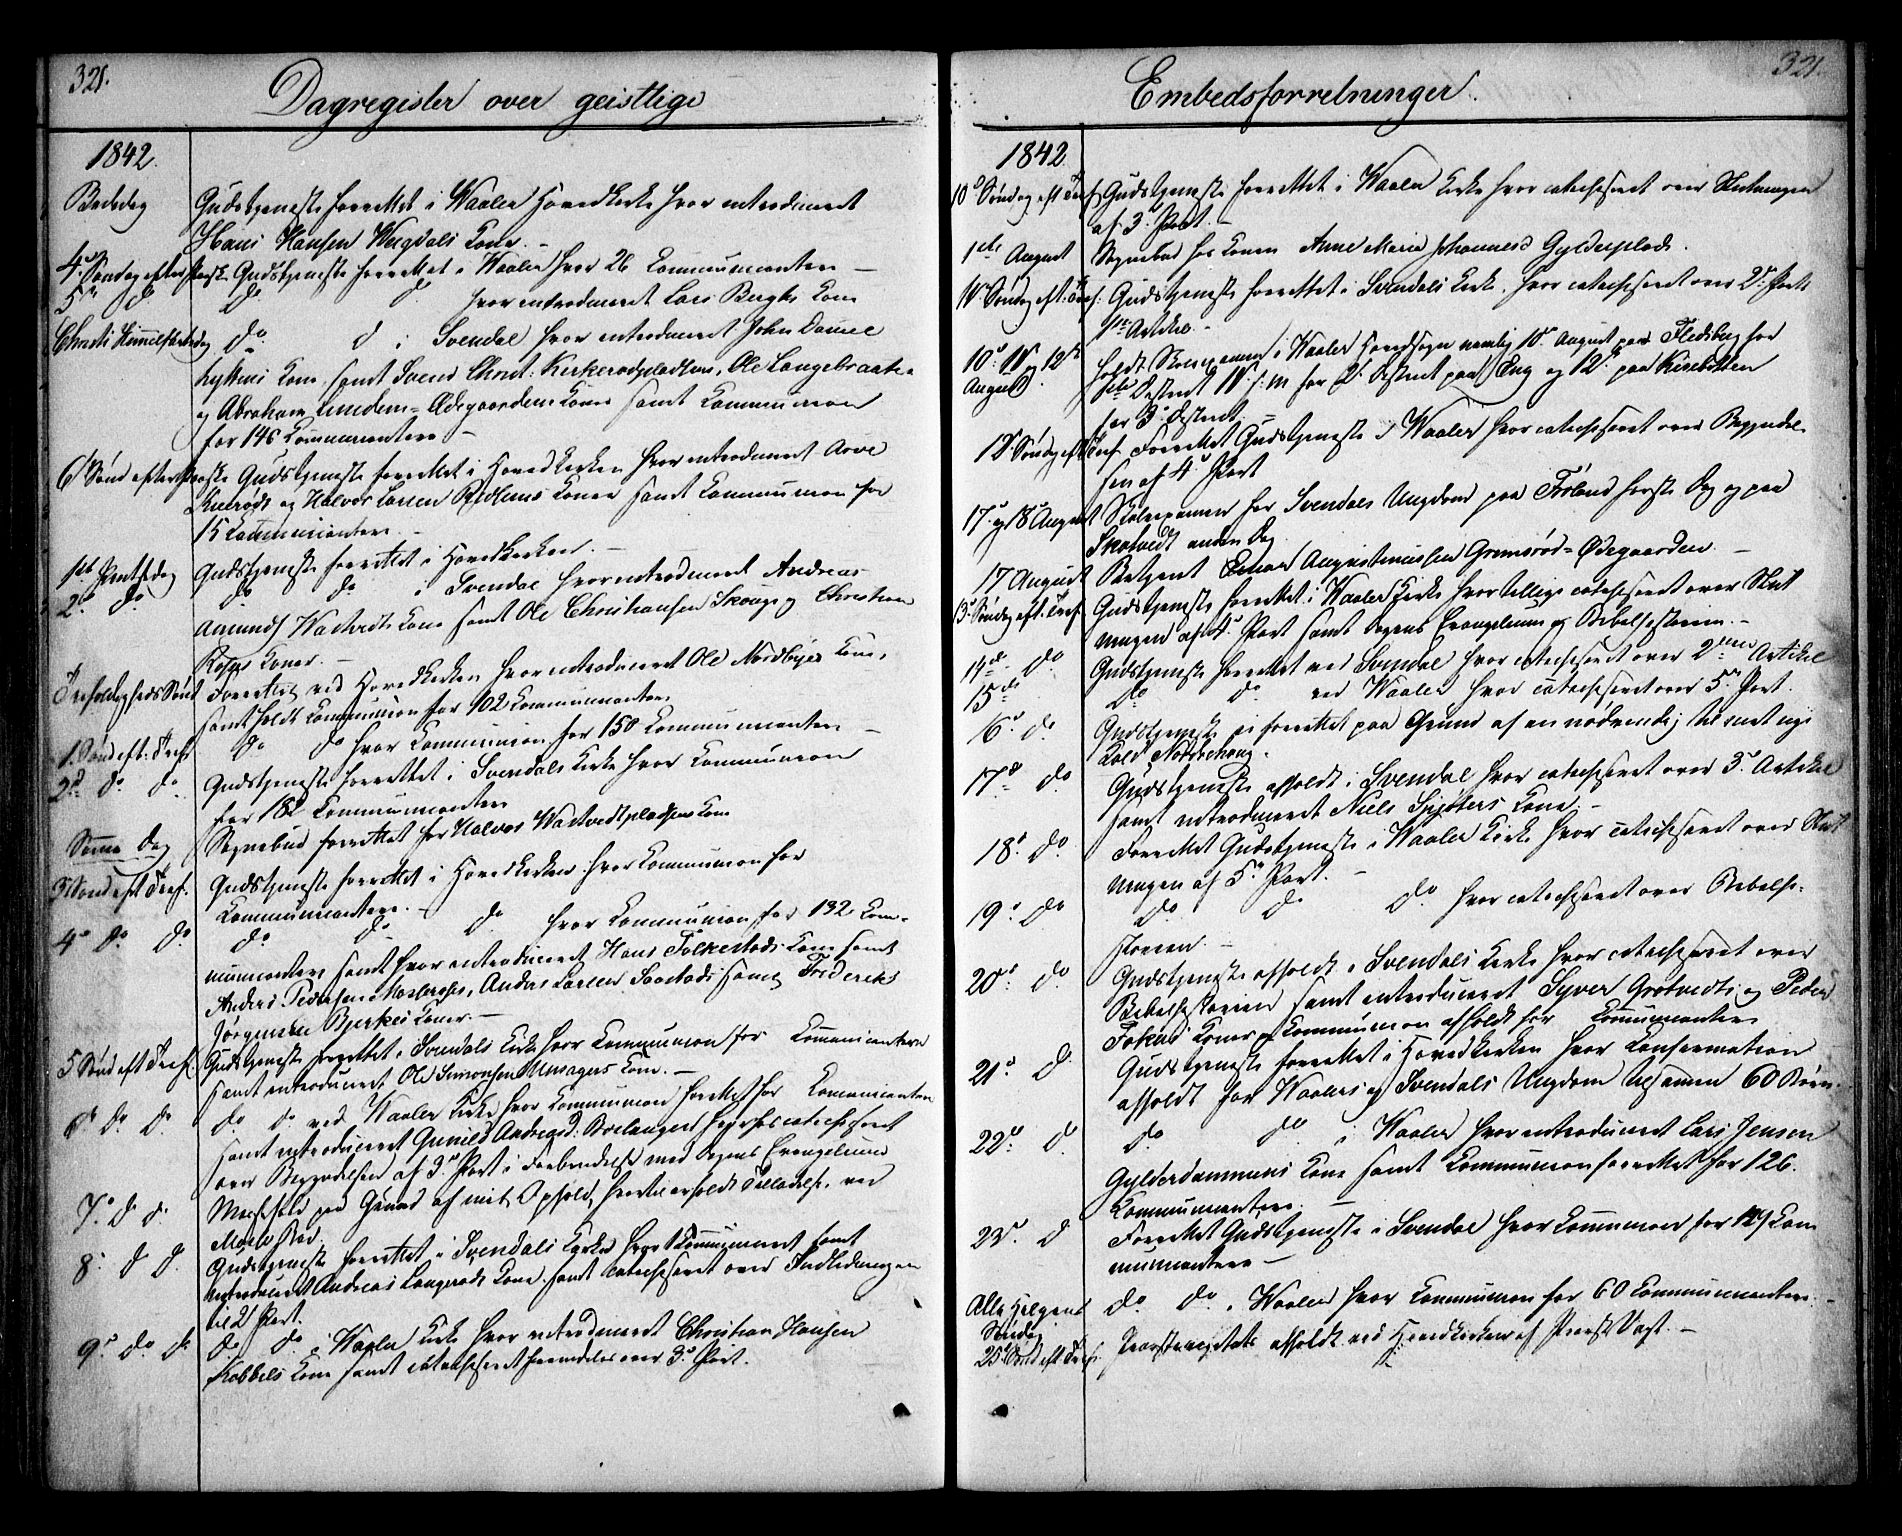 321.
Dagregister over geistlige
1842.
Bededag Gudstjeneste forrettet i Waaler Hovedkirke hvor introduceret
Hans Hansen Kone. –
4. Søndag efter Paaske Gudstjeneste forrettet i Waaler hvor 26 Communicantere –
5te do do do hvor introduceret Lars Berghs Kone
Christi Himmelfartsdag do d i Svendal hvor introduceret John Damme
Kone, samt Svend Christ. Kirkerødpladsen, Ole Langebraate
og Abraham Ødegaardens Koner samt Communion
for 146 Communicantere –
6 Sønd efter Paaske Gudstjeneste forrettet i Hovedkirken hvor introduceret Arve
og Halvor Larsen Koner samt Communion for
15 Communicantere –
1ste Pintsedag Gudstjeneste forrettet i Hovedkirken. –
2d do do do i Svendal hvor introduceret Andreas
Kone samt Ole Christiansen Skouge og Christian
Koner. –
Trefoldigheds Sønd Forrettet ved Hovedkirken hvor introduceret Ole Nordbyes Kone,
samt holdt Communion for 102 Communicantere
1. Sønd eft. Tref. do do hvor Communion for 150 Communicantere –
2d do do Gudstjeneste forrettet i Svendals Kirke hvor Communion
for 182 Communicantere
Samme Dag Sognebud forrettet for Halvor Kone
3 Sønd eft Tref. Gudstjeneste forrettet i Hovedkirken hvor Communion for
Communicantere. –
4d do do do do do hvor Communion for 132 Com-
municantere samt hvor introduceret Hans Folkestads Kone samt
Anders Pedersen Anders Larsen samt Frederik
Jørgensen Bjerkes Koner. –
5 Sønd eft Tref. Gudstjeneste forrettet i Svendals Kirke hvor Communion for Communicantere
samt introduceret Ole Simonsen Kone. –
6d do do do do ved Waaler Kirke hvor Communion forrettet for Communicantere
samt introduceret Gunild
over Begyndelsen af 3d Part i Forbindelse med Dagens Evangelium
7d do do Messefald paa Grund af mit Ophold, hvortil erholdt Tilladelse, ved
Moss Bad.
8 d d Gudstjeneste forrettet i Svendals Kirke hvor Communiceret samt
introduceret Andreas Langerøds Kone samt catechiseret over Indledningen
til 2 Part.
9d do do do do i Waaler Kirke hvor introduceret Christian Hansen
Kobbels Kone samt catechiseret fremdeles over 3d Part.
321.
Embedsforretninger.
1842
10d Søndag eft Tref Gudstjeneste forrettet i Waaler Kirke hvor catechiseret over Slutningen
af 3d Part. –
1ste August Sognebud hos Konen Anne Maria Johannesd Gylderplads.
11d Søndag eft. Tref. Gudstjeneste forrettet i Svendals Kirke, hvor catechiseret over 2den Parts
1ste Artikel –
10d 11d 12te holdt Skoleexamen i Waaler Hovedsogn nemlig 10d August paa Flesberg for
August. 1ste District 11d for 2d District paa Eng og 12te paa Kirkebakken
for 3d District.
12d Søndag eft Tref. Forrettet Gudstjeneste i Waaler hvor catechiseret over Begyndel-
sen af 4d Part
17d og 18d August Skoleexamen for Svendals Ungdom paa første Dag og paa
Skotvedt anden Dag
17 August Augustinussen Grimsrød-Ødegaarden. –
13d Søndag eft. Tref. Gudstjeneste forrettet i Waaler Kirke hvor tillige catechiseret over Slut
ningen af 4d Part samt Dagens Evangelium og Bibelhistorien. –
14de do Gudstjeneste forrettet ved Svendal hvor catechiseret over 2den Artikel
15de do do ved Waaler hvor catechiseret over 5te Part.
16d do. Gudstjeneste ei forrettet paa Grund af en nødvendig
17d do Gudstjeneste afholdt i Svendal hvor catechiseret over 3d Artikel
samt introduceret Niels Kone. –
18d do. Forrettet Gudstjeneste i Waaler Kirke hvor catechiseret over Slut
ningen af 5te Part. –
19d do do do do hvor catechiseret over Bibelhi-
storien. –
20d do. Gudstjeneste afholdt i Svendals Kirke hvor catechiseret over
Bibelhistorien samt introduceret Syver Grøtvedts og Peder
Koner og Communion afholdt for Communicantere
21d d. Gudstjeneste forrettet i Hovedkirken hvor Confirmation
afholdt for Waalers og Svendals Ungdom tilsammen 60 Børn.
22d d do do i Waaler hvor introduceret Lars Jensen
Gylderdammens Kone samt Communion forrettet for 126.
Communicantere. –
23d. d Forrettet Gudstjeneste i Svendal hvor Communion for 129 Com
municantere –
Alle Helgens do do. i Waaler hvor Communion for 60 Communicantere. –
Søndag
25d Sønd eft Tref. afholdt ved Hovedkirken af Provst Vogt. –